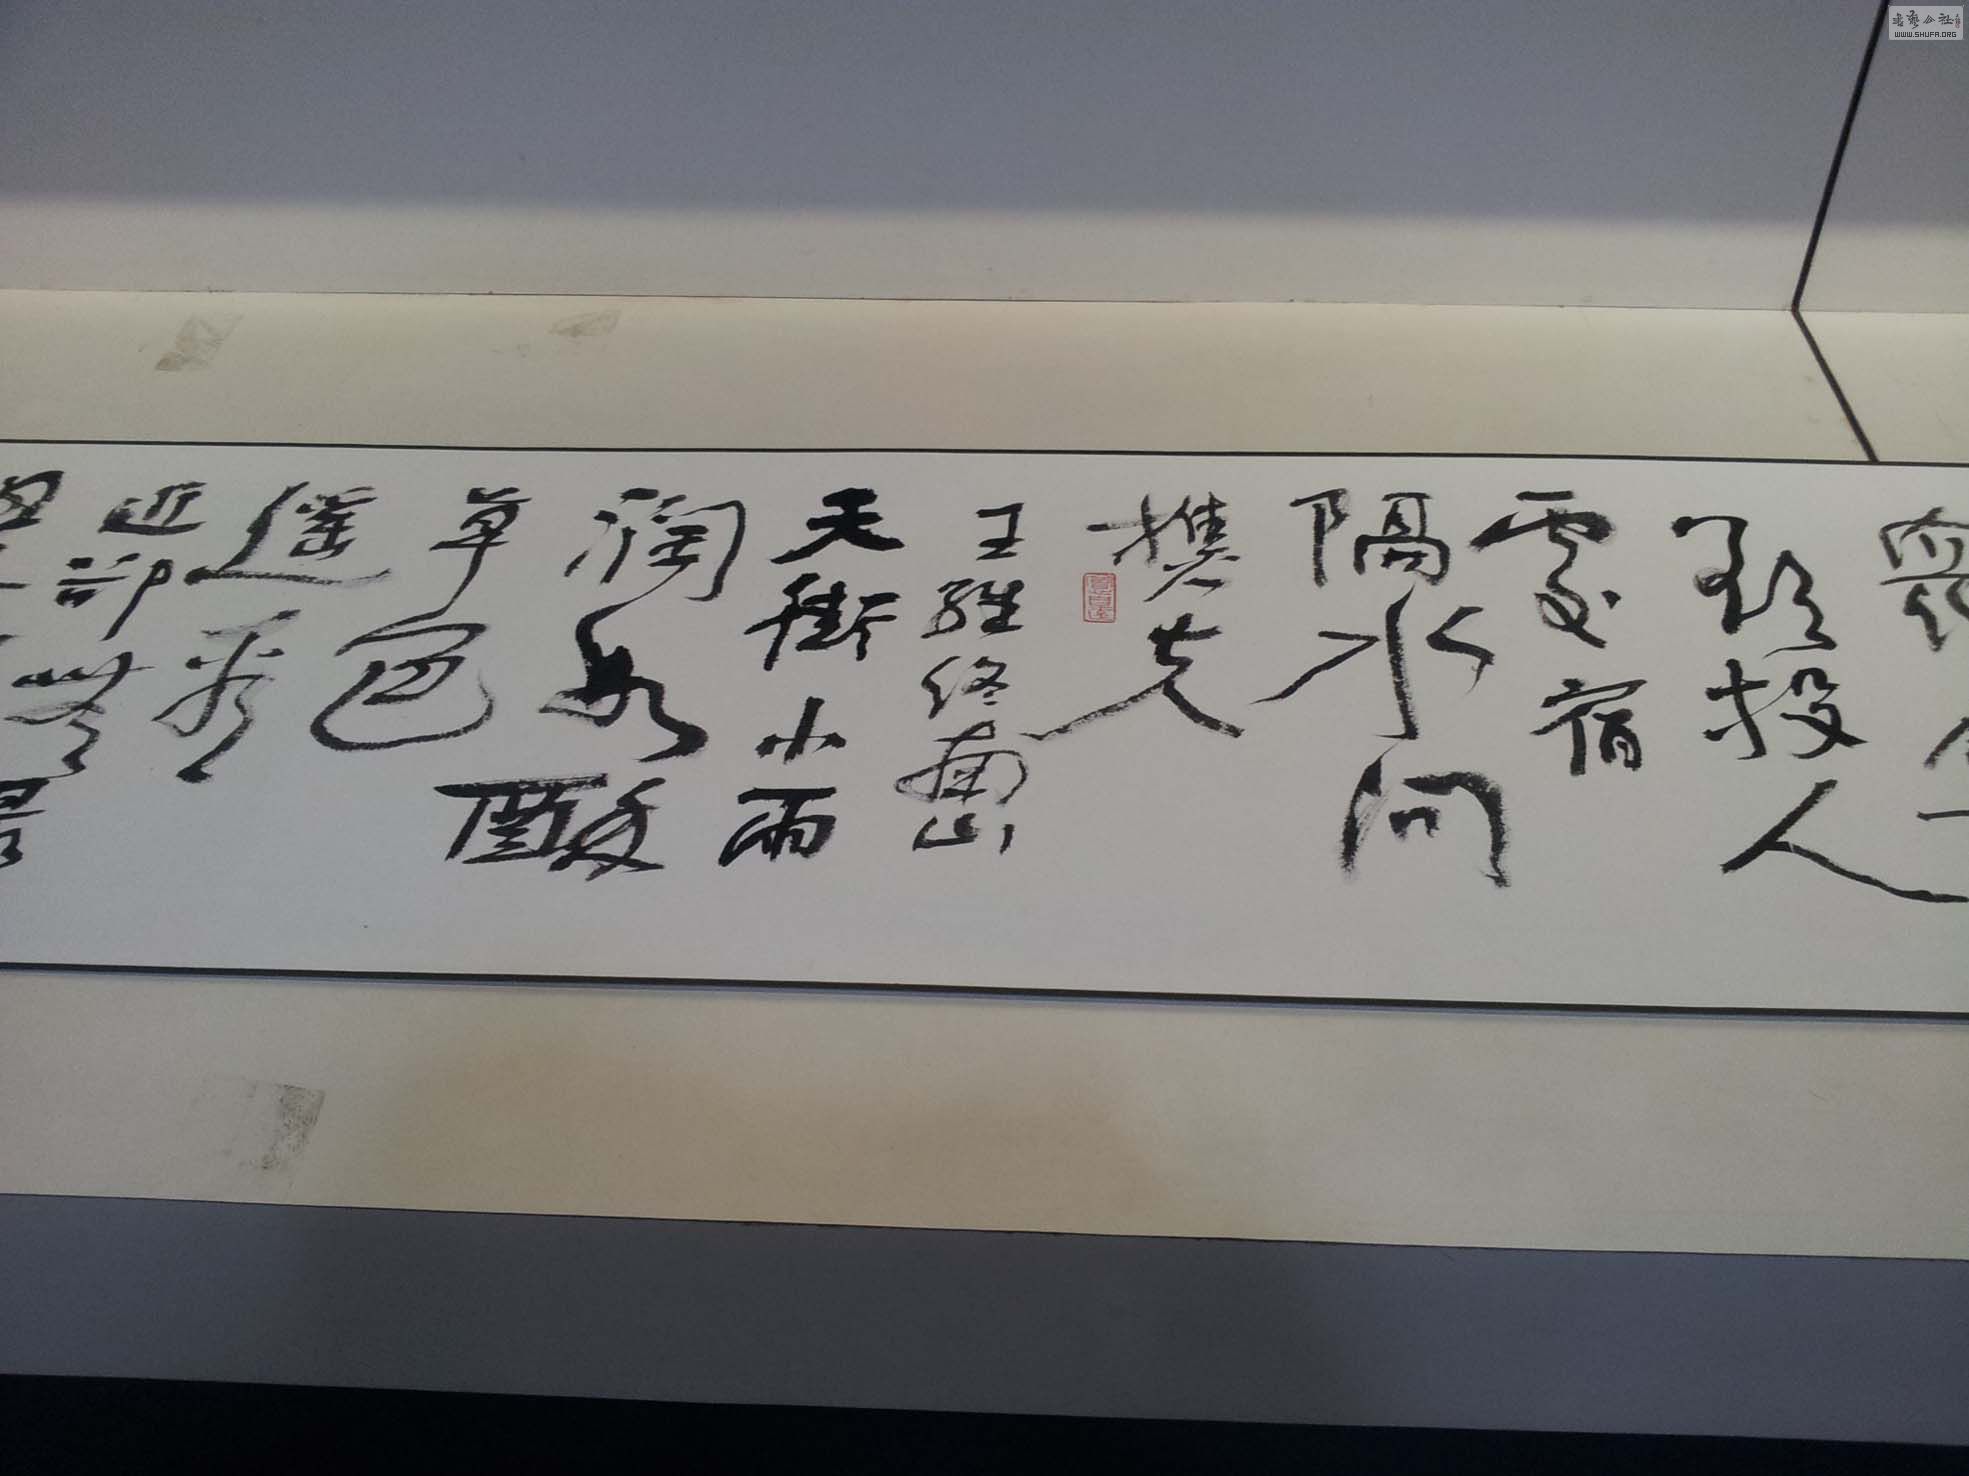 欲投人
處宿
隔水問
樵夫
王維終南山
天街小雨
潤如酥
草色
遥看
近却無
书艺公社
WWW.SHUFA.ORG